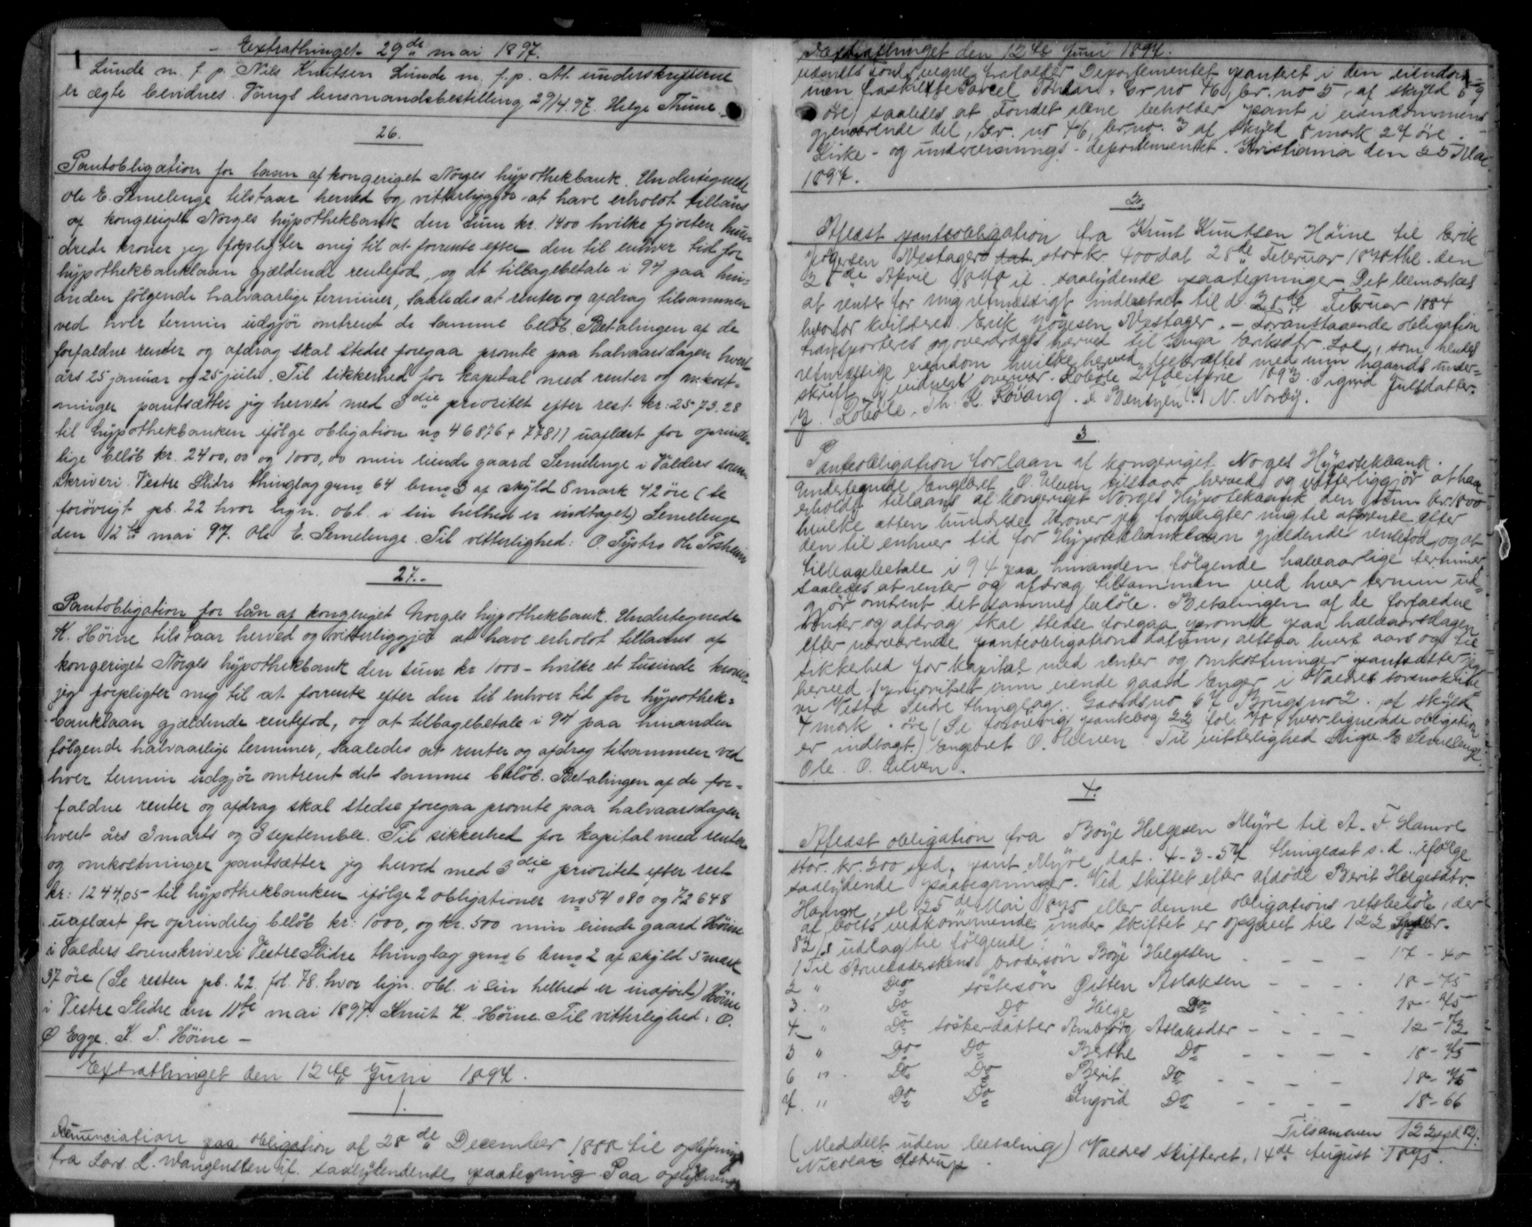 Extrathinget 29de mai 1897.
Lunde m. f. p. Nils Knutsen Lunde m. f. p. At underskrifterne
er ægte bevidnes. Vangs lensmandsbestilling 29/4.97. Helge Thune.
26.
Pantobligation for laan af kongeriget Norges hypothekbank. Undertegnede
Ole E. Semelenge tilstaar herved og vitterliggjør at have erholdt tillaans
af kongeriget Norges hypothekbank den sum kr. 1400 hvilke fjorten hun
drede kroner jeg forpligter mig til at forrente efter den til enhver tid for
hypothekbanklaan gjældende rentefod, og at tilbagebetale i 94 paa hin-
anden følgende halvaarlige terminer, saaledes at renter og afdrag tilsammen
ved hver termin udgjør omtrent de samme beløb. Betalingen af de
forfaldne renter og afdrag skal stedse foregaa promte paa halvaarsdagen hvert
års 25 januar og 25 juli. Til sikkerhed for kapital med renter og omkost-
ninger pantsætter jeg herved med 3die prioritet efter rest kr. 2573.28
til hypothekbanken ifølge obligation no 46876 + 77811 uaflæst for oprinde-
lige beløb kr. 2400,00 og 1000,00 min eiende gaard Semelenge i Valders soren
skriveri Vestre Slidre thinglag gno 64 bno 3 af skyld 8 mark 42 øre (se
forøvrigt pb. 22 hvor lign. obl. i sin helhed er indtaget) Semelenge
den 12te mai 97. Ole E. Semelenge. Til vitterlighed: O. Ole
27.
Pantobligation for lån af kongeriget Norges hypothekbank. Undertegnede
K. Høine tilstaar herved og vitterliggjør at have erholdt tillaans af
kongeriget Norges hypothekbank den sum kr 1000 – hvilke et tusinde kroner
jeg forpligter mig til at forrente efter den til enhver tid for hypothek=
banklaan gjældende rentefod, og at tilbagebetale i 94 paa hinanden
følgende halvaarlige terminer, saaledes at renter og afdrag tilsammen ved
hver termin udgjør omtrent det samme beløb. Betalingen af de for=
faldne renter og afdrag skal stedse foregaa promte paa halvaarsdagen
hvert års 3 marts og 3 september. Til sikkerhed for kapital med renter
og omkostninger pantsætter jeg herved med 3die prioritet efter rest
kr: 1244,05 til hypothekbanken ifølge 2 obligationer no 54080 og 72648
uaflæst for oprindelig beløb kr: 1000, og kr. 500 min eiende gaard Høine
i Valders sorenskriveri Vestre Slidre thinglag gno 6 bno 2 af skyld 5 mark
37 øre (Se resten pb. 22 fol. 78. hvor lign. obl. i sin helhed er indført) Høine
i Vestre Slidre den 11te mai 1897. Knut K. Høine. Til vitterlighed: O.
Ø Egge. K. T. Høine –
Extrathinget den 12te Juni 1897.
1.
Renunciation paa obligation af 28de December 1888 til oplysning
fra Lars L. Wangensten if. saalydendende paategning Paa
Extrathinget den 12te Juni 1897.
Fonds vegne frafalder Departementet pantet i den eiendom-
men fraskilte Parcel Gr no 76, br. no 5, af skyld
øre, saaledes at Fondet alene beholder pant i eiendommens
gjenværende del, Gr. no 76, br. no. 3 af skyld 8 mark 27 øre.
Kirke- og undervisnings-departementet. Kristiania den 25 Mai
1897.
2.
Aflæst panteobligation fra Knut Knutsen Høine til Erik
Jørgensen Nestager stor kr 400 dat 28de Februar 1878 thl. den
April 1878 if. saalydende paategninger Det bemærkes
at renter for mig retmæssigt indbetalt til d. 28de Februar 1884
hvorfor kvitteres Erik Jørgensen Nestager. – Foranstaaende obligation
transporteres og overdrages herved til Inga som hendes
retmæssige eiendom hvilket herved bekræftes med min egands under=
skrift i vidners overvær. Robøle 1893. Sigrid Julsdatter.
Robøle. Th. K. Lovang. Bentzen N. Norby.
3
Panteobligation for laan af kongeriget Norges Hypotekbank.
Undertegnede Engebret O. Ulven tilstaar herved og vitterliggjør at have
erholdt tillaans af kongeriget Norges Hypotekbank den sum kr. 1800
hvilke atten hundrede kroner jeg forpligter mig til at forrente efter
den til enhver tid for Hypotekbanklaan gjældende rentefod og at
tilbagebetale i 94 paa hinanden følgende halvaarlige terminer
saaledes at renter og afdrag tilsammen ved hver termin ud-
gjør omtrent det samme beløb. Betalingen af de forfaldne
renter og afdrag skal stedse foregaa promte paa halvaarsdagen
efter nærværende panteobligations datum, altsaa hvert aars og Til
sikkerhed for kapital med renter og omkostninger pantsætter jeg
herved prioritet min eiende gaard Enger i Valders sorenskrive
ri Vestre Slidre thinglag. Gaardsno 67 Brugsno 2. af skyld
4 mark . øre (Se forøvrig pantebog 22 fol. 78 hvor lignende obligation
er indtagt) Engebret O. Ulven. Til vitterlighed E Semelenge.
Ole. O. Ulven.
4.
Aflæst obligation fra Bøye Helgesen Myre til A. F. Hamre
stor. kr. 200 spd, pant Myre, dat. 4-3-57 thinglæst s. d. ifølge
saalydende paategninger. Ved skiftet efter afdøde Berit Helgesdtr.
Hamre, sl 25de Mai 1875 eller denne obligations restbeløb, der
af boets vedkommende under skiftet er opgivet til 122 Spdlr.
82 s udlagt til følgende:
1 Til Arveladerskens brodersøn Bøye Helgesen – – – 17 – 40
2 „ Do søstersøn Østen Aslaksen – – – 18 – 75
3 „ Do Do Helge Do – – – 18 – 75
4 „ Do søster-datter Aslaksdtr – – – 12 – 72
5 „ Do Do Berthe Do – – – 18 – 75
6 „ Do Do Berit Do – – – 18 – 75
7. „ Do Do Ingrid Do – – – 18 – 66
Tilsammen 122 spd 82.
(Meddelt uden betaling) Valdres skifteret, 14de August 1875.
Nicolai Astrup